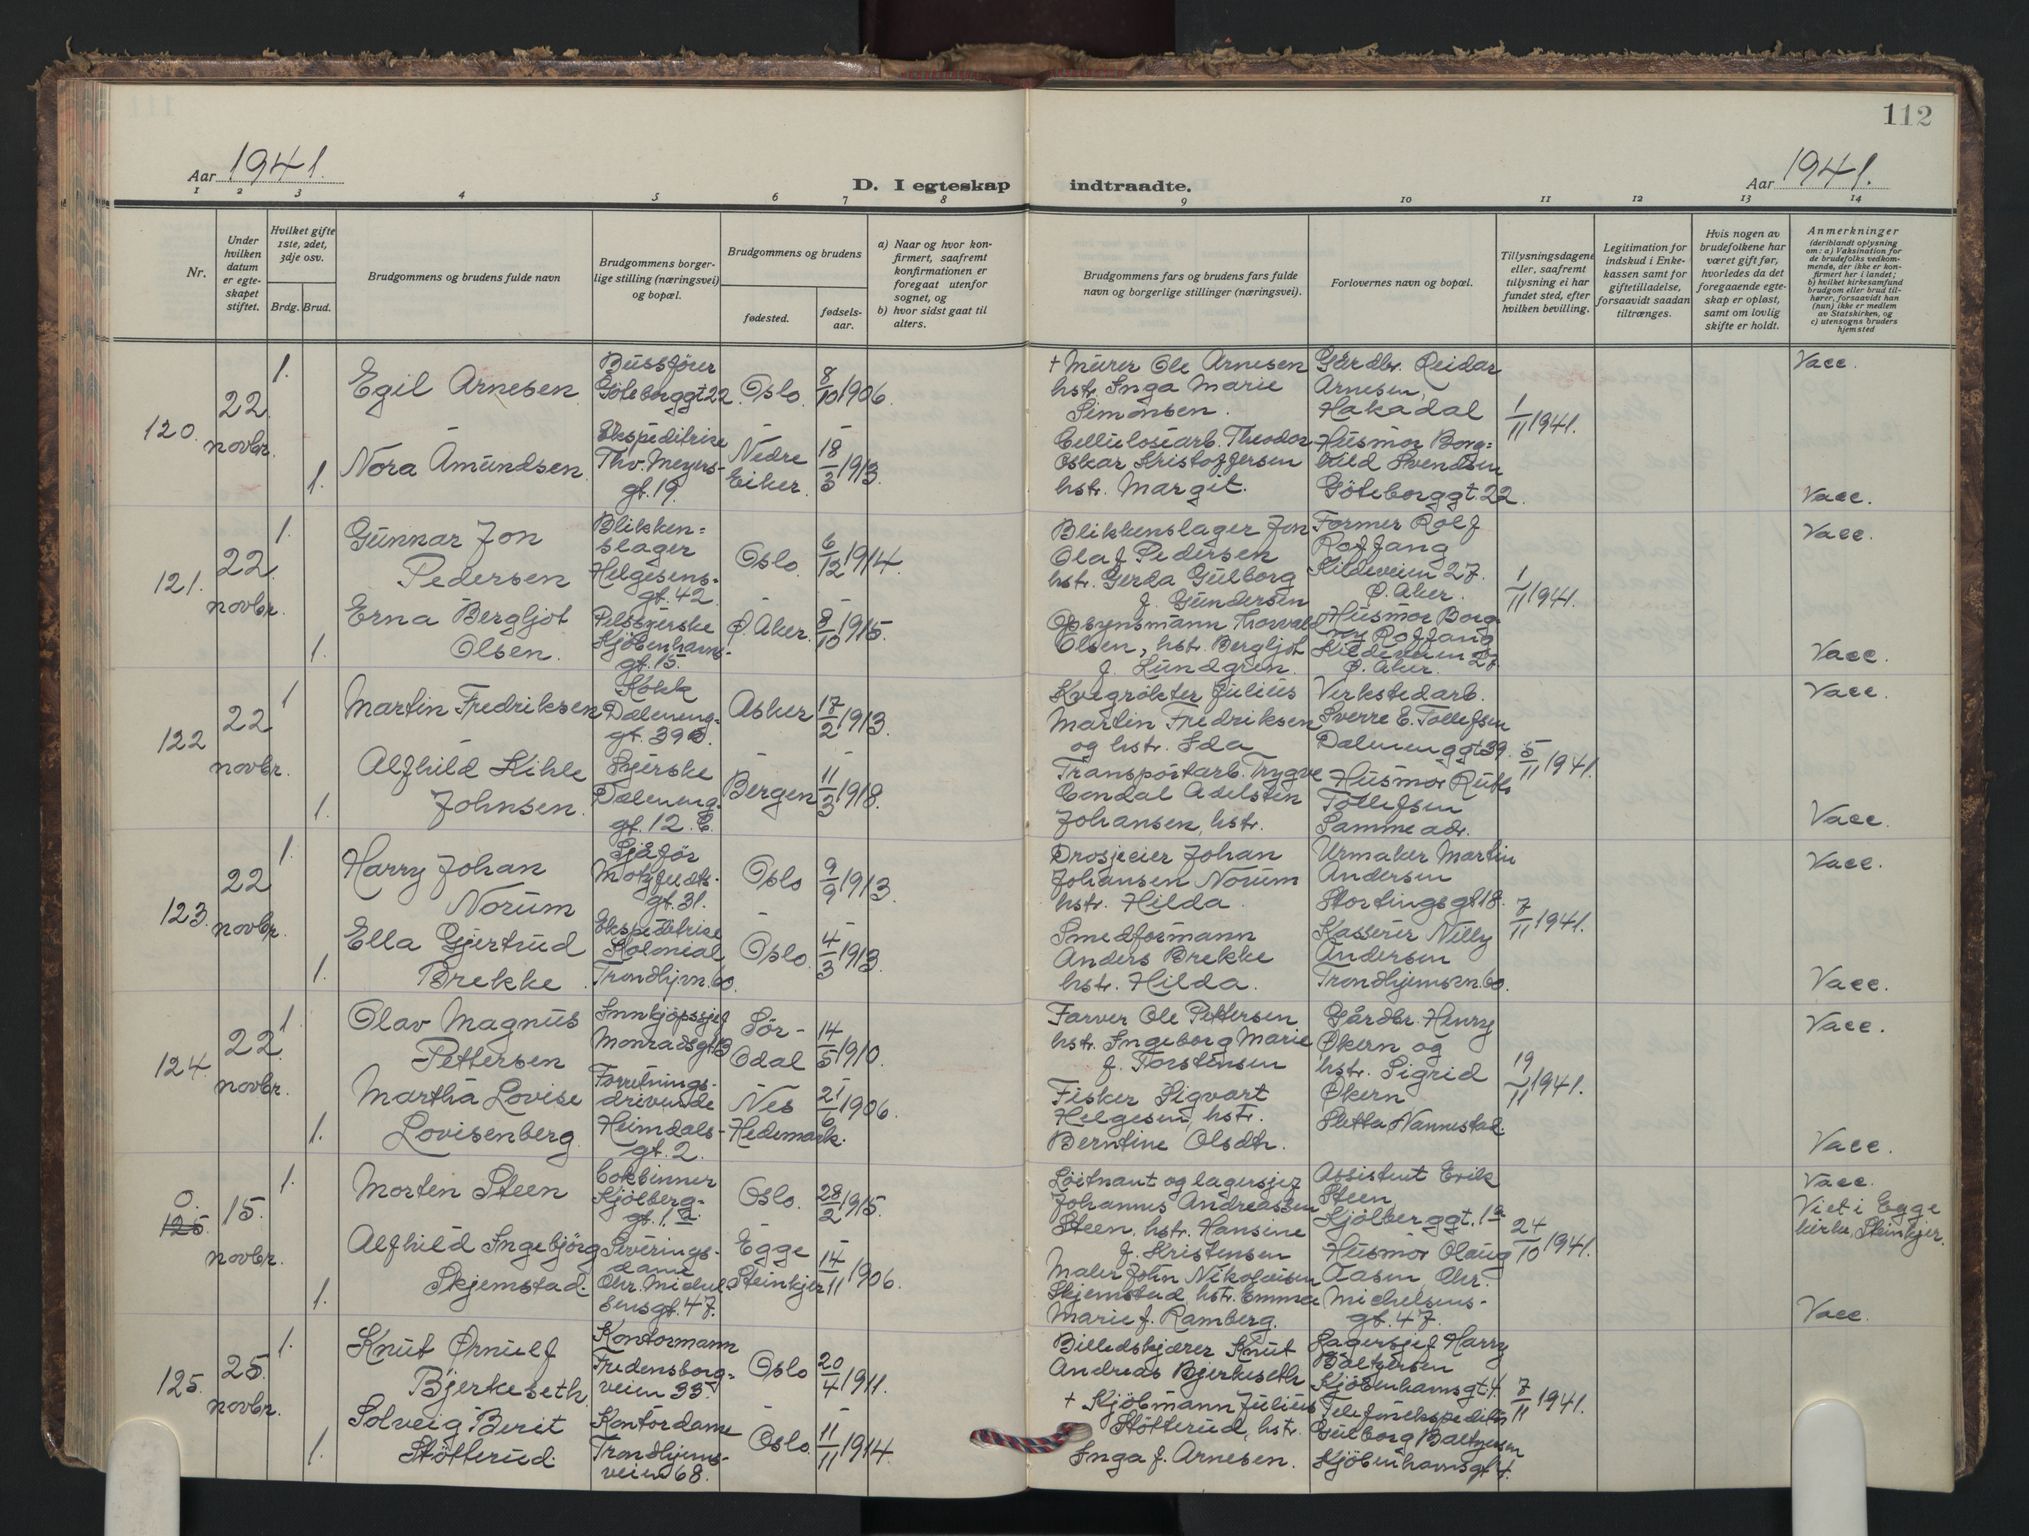 112
Aar 1941.
D. I egteskap indtraadte.
Aar 1941.
1 2 3 4 5 6 7 8 9 10 11 12 13 14
Nr.
Under hvilken datum er egteskapet stiftet.
Hvilket gifte 1ste, 2det, 3dje osv.
Brdg. Brud.
Brudgommens og brudens fulde navn
Brudgommens borgerlige stilling (næringsvei) og bopæl.
Brudgommens og brudens
fødested.
fødselsaar.
a) Naar og hvor konfirmert, saafremt konfirmationen er foregaat utenfor sognet, og
b) hvor sidst gaat til alters.
Brudgommens fars og brudens fars fulde navn og borgerlige stillinger (næringsvei).
Forlovernes navn og bopæl.
Tillysningsdagene eller, saafremt tillysning ei har fundet sted, efter hvilken bevilling.
Legitimation for indskud i Enkekassen samt for giftetilladelse, forsaavidt saadan tiltrænges.
Hvis nogen av brudefolkene har været gift før, hvorledes da det foregaaende egteskap er opløst, samt om lovlig skifte er holdt.
Anmerkninger
(deriblandt oplysning om: a) Vaksination for de brudefolks vedkommende, der ikke er konfirmert her i landet; b) hvilket kirkesamfund brudgom eller brud tilhører, forsaavidt han (hun) ikke er medlem av Statskirken, og c) utensogns bruders hjemsted
120. 22 novbr. 1.
Egil Arnesen
Bussfører
Göteborggt 22.
Oslo.
8/10 1906.
+ Murer Ole Arnesen
hstr. Inga Marie
Simonsen.
Gårdbr. Reidar
Arnesen,
Hakadal
1/11 1941.
Vacc.
1.
Nora Amundsen
Ekspeditrise
Thv. Meyers-
gt. 19.
Nedre
Eiker.
18/3 1913.
Cellulosearb. Theodor
Oskar Kristoffersen
hstr. Margit.
Husmor Borg=
hild Svendsen
Göteborggt. 22.
Vacc.
121. 22 novbr. 1.
Gunnar Jon
Pedersen
Blikken=
slager
Helgesens-
gt. 42.
Oslo.
6/12 1914.
Blikkenslager Jon
Olaf Pedersen
hstr. Gerda Gulborg
f. Gundersen
Former Rolf
Roffang
Kildeveien 27.
Ø. Aker.
1/11 1941.
Vacc.
1.
Erna Bergljot
Olsen.
Pelssyerske
Kjøbenhavns-
gt. 15.
Ø. Aker.
8/10 1915.
Opsynsmann Thorvald
Olsen, hstr. Bergljot
f. Lundgren.
Husmor Borg-
ny Roffang
Kildeveien 27
Ø. Aker.
Vacc.
122 22 novbr. 1
Martin Fredriksen
Kokk
Dæleneng-
gt. 39
Asker
17/2 1913.
Kvegrökter Julius
Martin Fredriksen
og hstr. Ida
Verkstedarb.
Sverre E. Tollefsen
Dælenenggt 39.
5/11 1941.
Vacc.
1.
Alfhild Kihle
Johnsen.
Syerske
Dæleneng-
gt. 12. C.
Bergen
11/3 1918.
Transportarb. Trygve
Condal Adelsten
Johansen, hstr.
Husmor Ruth
Tollefsen
Samme adr.
Vacc.
123. 22 novbr. 1.
Harry Johan
Norum
Sjåför
Motzfeldts-
gt. 31.
Oslo
9/9 1913.
Drosjeeier Johan
Johansen Norum
hstr. Hilda.
Urmaker Martin
Andersen
Stortingsgt. 18.
7/11 1941.
Vacc.
1.
Ella Gjertrud
Brekke
Ekspeditrise
Kolonial
Trondhj.vn. 60.
Oslo.
4/3 1913.
Smedformann
Anders Brekke
hstr. Hilda.
Kasserer Nilly
Andersen
Trondhjemsvn. 60.
Vacc.
124. 22 novbr. 1.
Olav Magnus
Pettersen
Innkjöpssjef
Monradsgt 13
Sör-
Odal
14/5 1910.
Farver Ole Pettersen
hstr. Ingeborg Marie
f. Torstensen
Gårdbr. Henry
Økern og
hstr. Sigrid
Økern
19/11 1941.
Vacc.
1.
Martha Lovise
Lovisenberg
Forretnings-
drivende
Heimdals-
gt. 2.
Nes
Hedemark.
21/6 1906.
Fisker Sigvart
Helgesen, hstr.
Berntine Olsdtr.
Sletta, Nannestad.
Vacc.
0.
125 15. novbr. 1.
Morten Steen
Bokbinner
Kjölberg-
gt. 1 a.
Oslo.
28/2 1915.
Löitnant og lagersjef
Johannes Andreassen
Steen, hstr. Hansine
f. Kristensen
Assistent Erik
Steen
Kjölberggt. 1 a
24/10 1941.
Vacc.
Viet i Egge
kirke, Steinkjer.
1.
Alfhild Ingebjörg
Skjemstad.
Severings-
dame
Chr. Michel-
sensgt. 47.
Egge
Steinkjer
14/11 1906.
Maler John Nikolaisen
Skjemstad hstr. Emma
Marie f. Ramberg.
Husmor Olaug
Aasen Chr.
Michelsens-
gt. 47.
Vacc.
125. 25. novbr. 1.
Knut Ørnulf
Bjerkeseth
Kontormann
Fredensborg-
veien 33
Oslo
20/4 1911.
Billedskjærer Knut
Andreas Bjerkeseth
Lagersjef Harry
Baltzersen
Kjöbenhavnsgt. 4.
7/11 1941.
1.
Solveig Berit
Stötterud.
Kontordame
Trondhjems-
veien 68.
Oslo.
11/11 1914.
+ Kjöbmann Julius
Stötterud, hstr.
Inga f. Arnesen.
Telefonekspeditr.
Gulborg Baltzersen
Kjöbenhavnsgt 4.